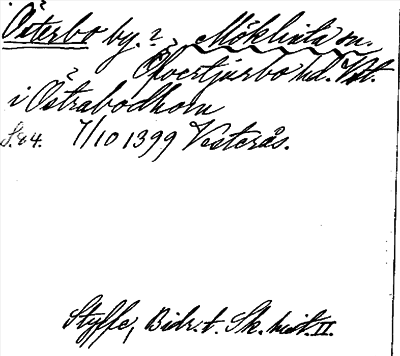 Österbo by.? Möklinta sn.
Övertjurbo hd. Vstm.
i Östrabodhom
S. 84. 7/10 1399 Vesterås.
Styffe, Bidr. t. Sk. hist. II.